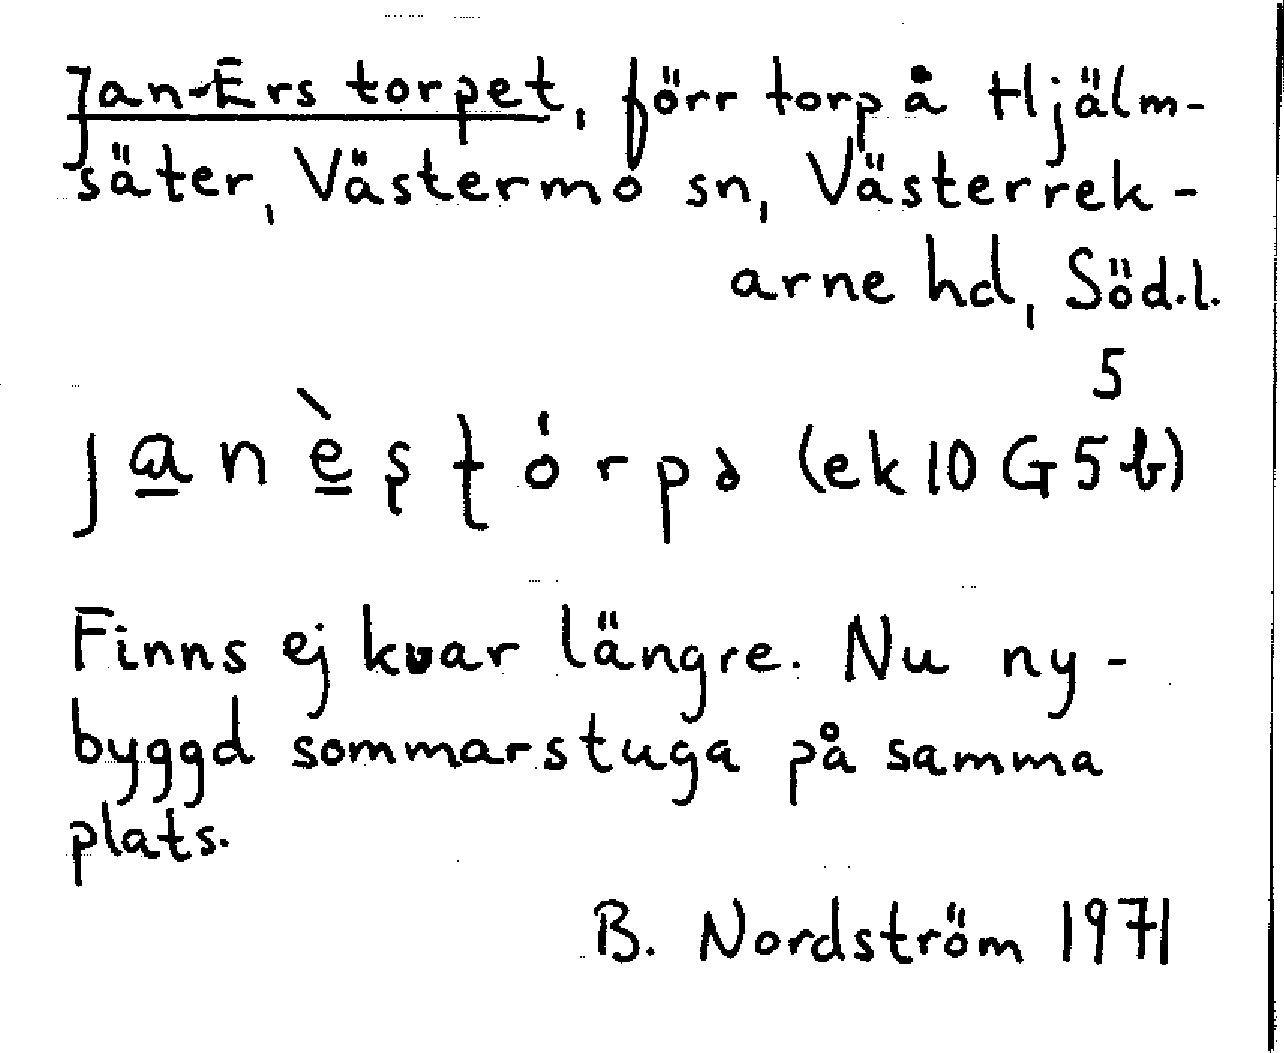 Jan-Ers torpet, förr torp å Hjälm-
säter, Västermo sn, Västerrek-
arne hd, Söd.l.
5
janèʂʈórpə (ek 10 G 5 b)
Finns ej kvar längre. Nu ny-
byggd sommarstuga på samma
plats.
B. Nordström 1971